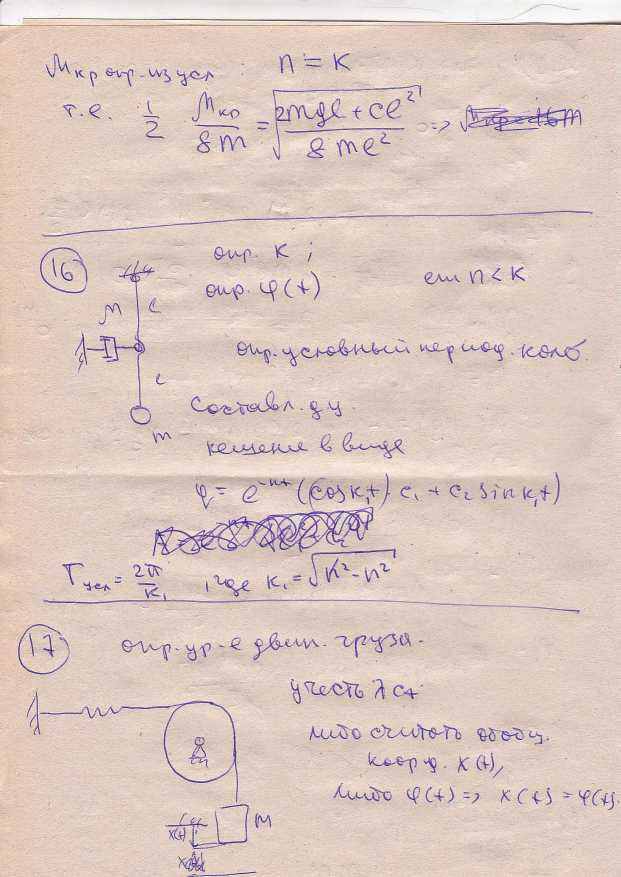 Мкр опр. из усл n = k
т.е. 1/2 Мкр/8m = √((2mgl + cl²)/(8ml²)) =>
16 опр. k ;
опр. φ(t) если n < k
M l
опр. условный период. колеб.
l
m
Составл. д.у.
решение в виде
φ = e^(-nt) ((cos k₁t) · c₁ + c₂ sin k₁t)
T усл = 2π/k₁ , где k₁ = √(k² - n²)
17 опр. ур-е движ. груза.
учесть λ ст
либо считать обобщ.
коорд. x(t),
либо φ(t) => x(t) = φ(t).
M
x(t)